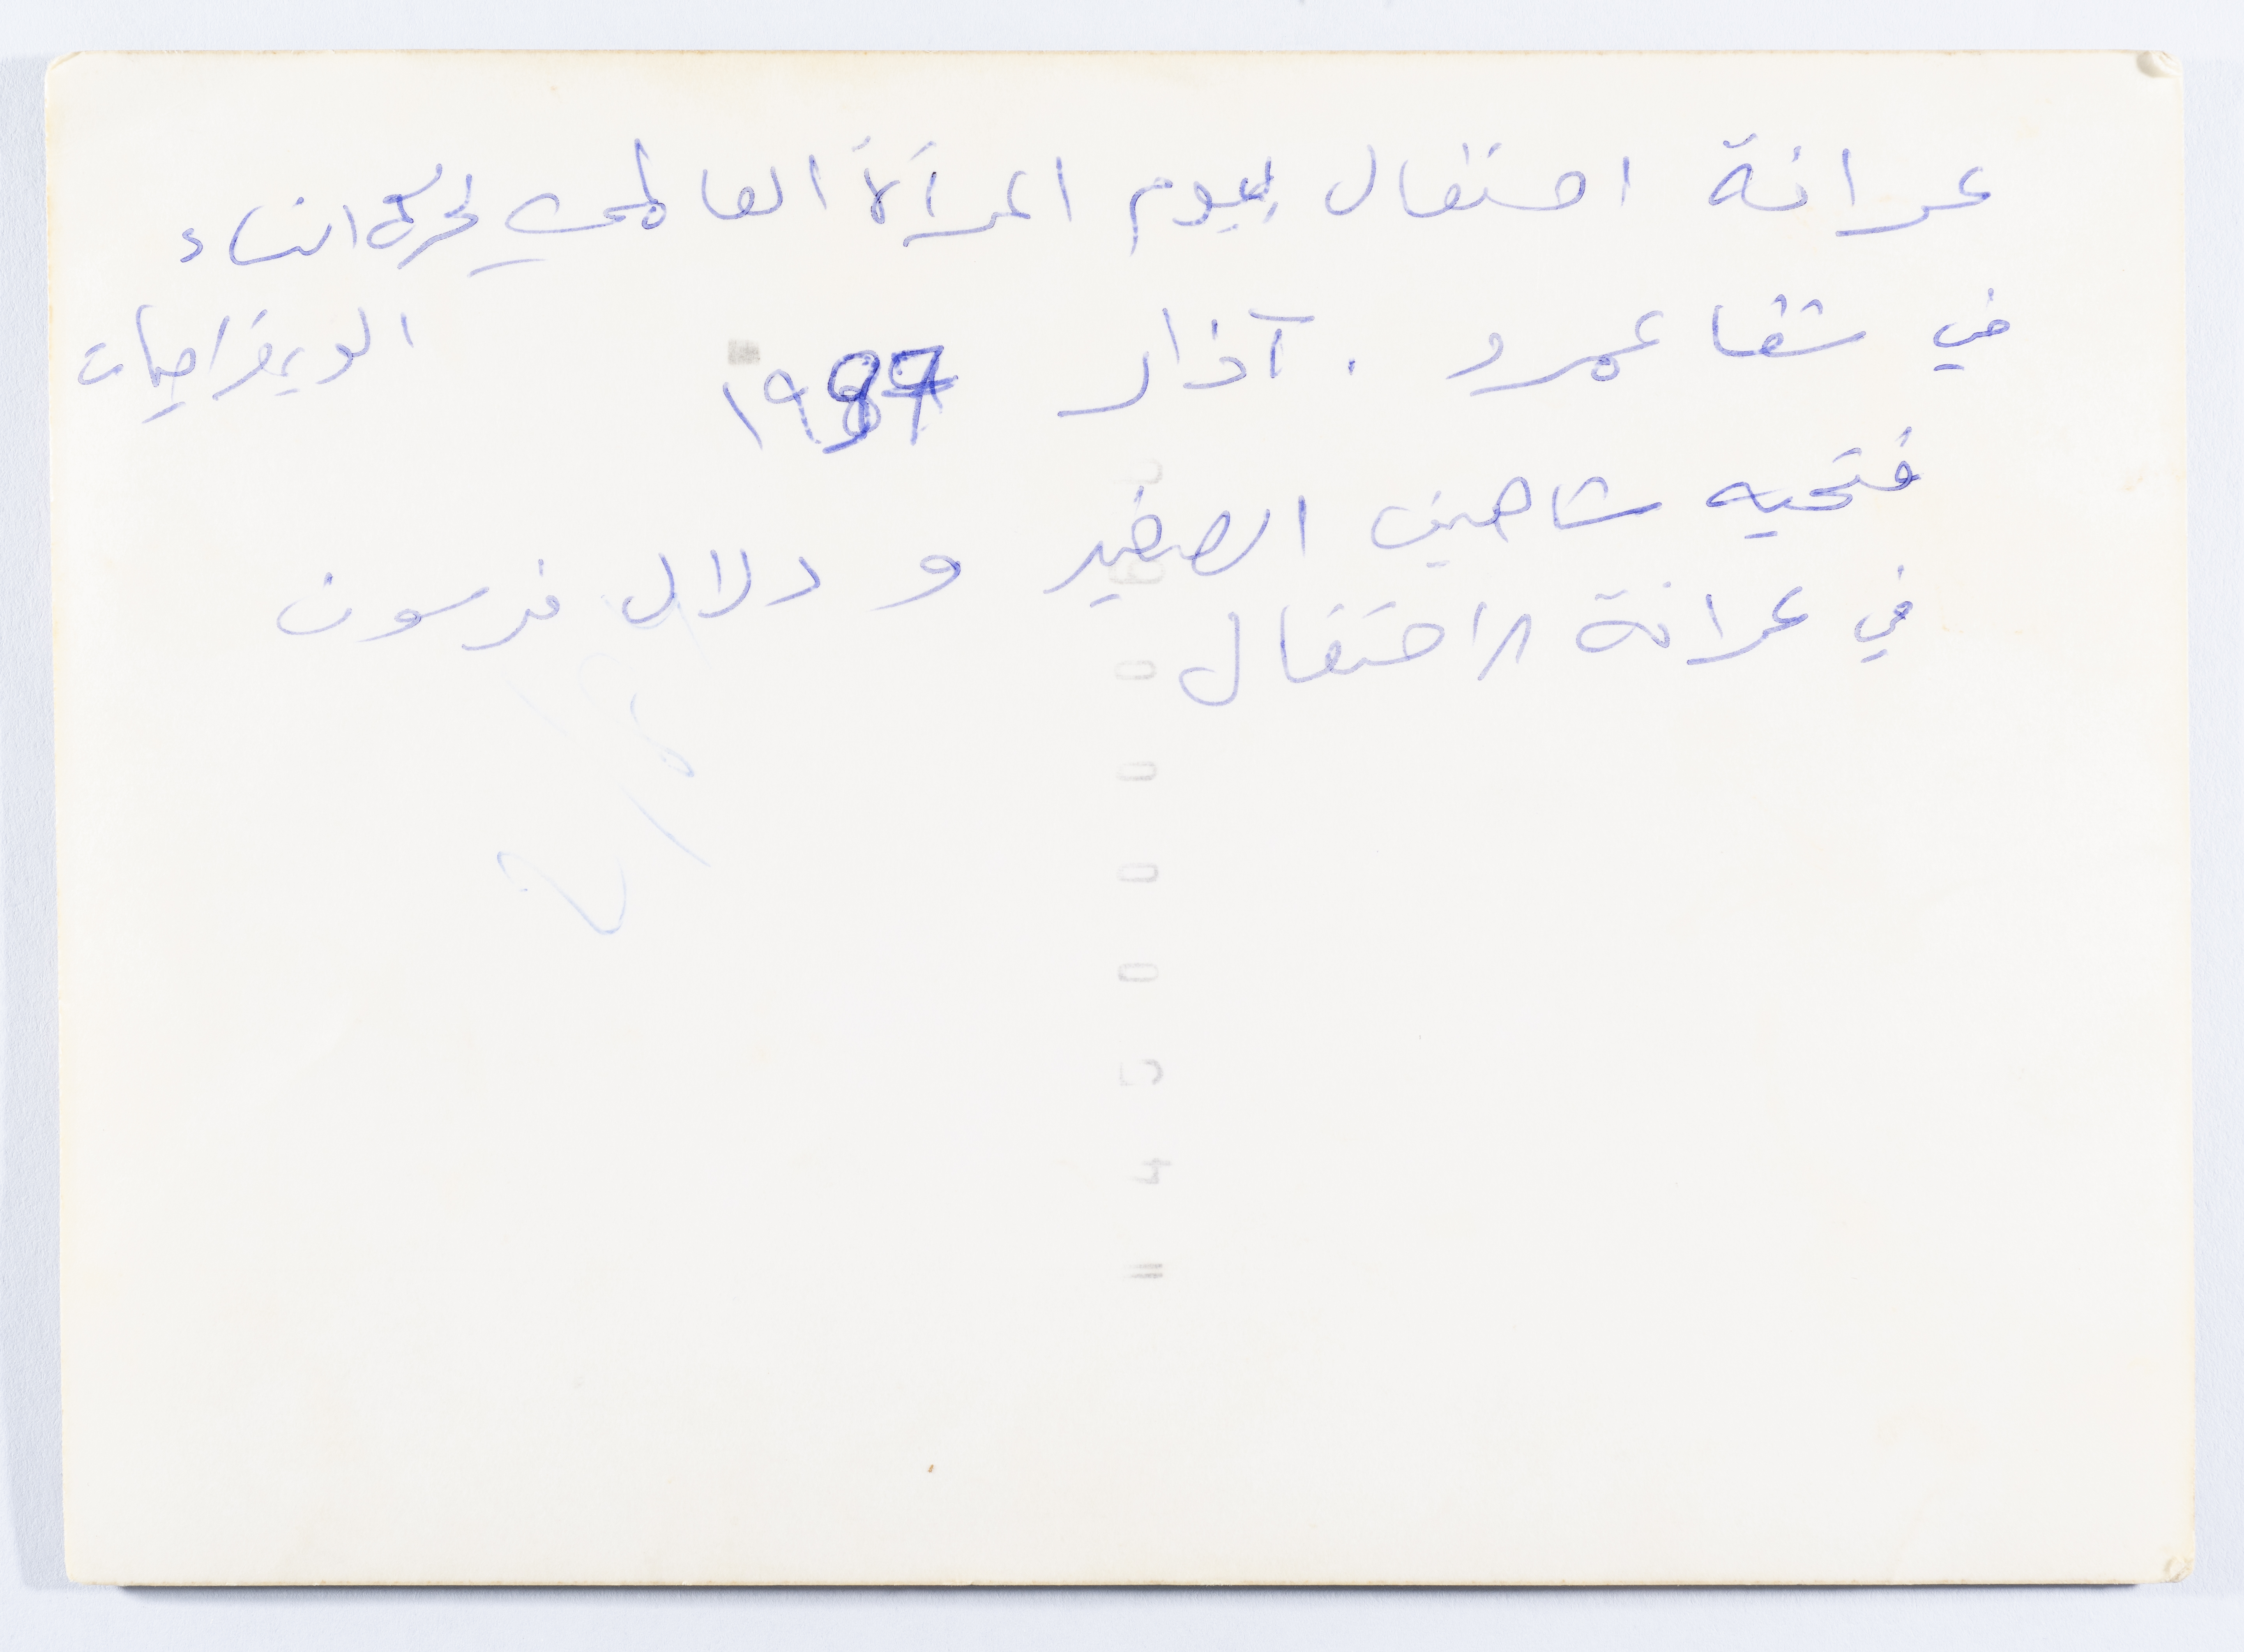 عرافة احتفال بيوم المرأة العالمي لحركة النساء
الديمقراطيات
في شفاعمرو . آذار
فتحيه شاهين الصغير و دلال فرسون
في عرافة الاحتفال